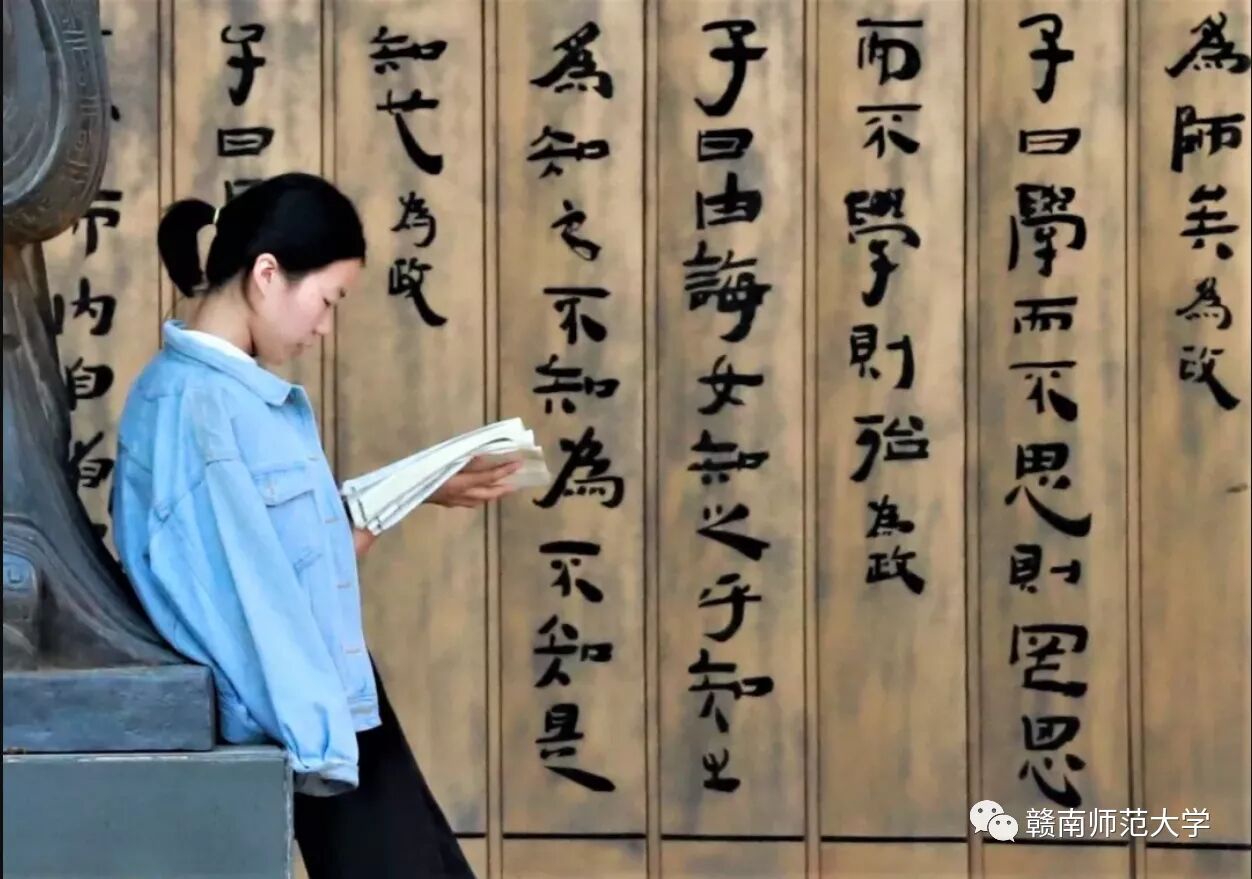 為師矣為政
子曰學而不思則罔思
而不學則殆為政
子曰由誨女知之乎知之
為知之不知為不知是
知也為政
子曰
内自省
赣南师范大学